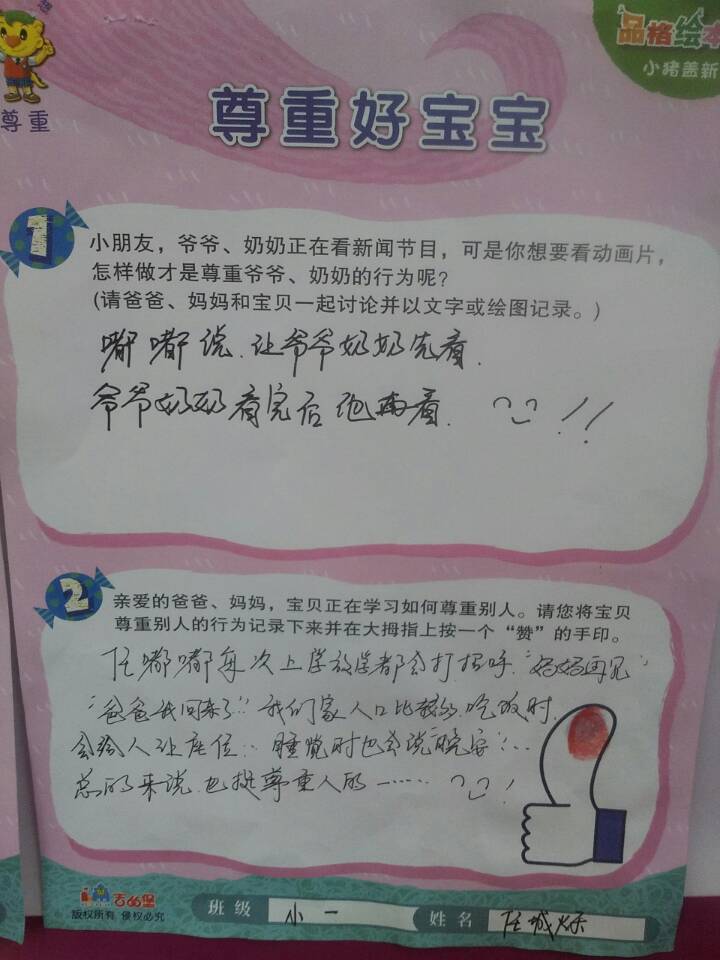 品格绘本
小猪盖新
尊重
尊重好宝宝
1
小朋友，爷爷、奶奶正在看新闻节目，可是你想要看动画片，
怎样做才是尊重爷爷、奶奶的行为呢？
(请爸爸、妈妈和宝贝一起讨论并以文字或绘图记录。)
嘟嘟说.让爷爷奶奶先看.
爷爷奶奶看完后他再看. !!
2
亲爱的爸爸、妈妈，宝贝正在学习如何尊重别人。请您将宝贝
尊重别人的行为记录下来并在大拇指上按一个“赞”的手印。
任嘟嘟每次上学放学都会打招呼.“妈妈再见”
“爸爸我回来了!!我们家人口比较多.吃饭时.
会给人让座位.. 睡觉时也会说“晚安”...
总的来说.也挺尊重人的…… !
吉的堡
版权所有 侵权必究
班级 小一 姓名 任城